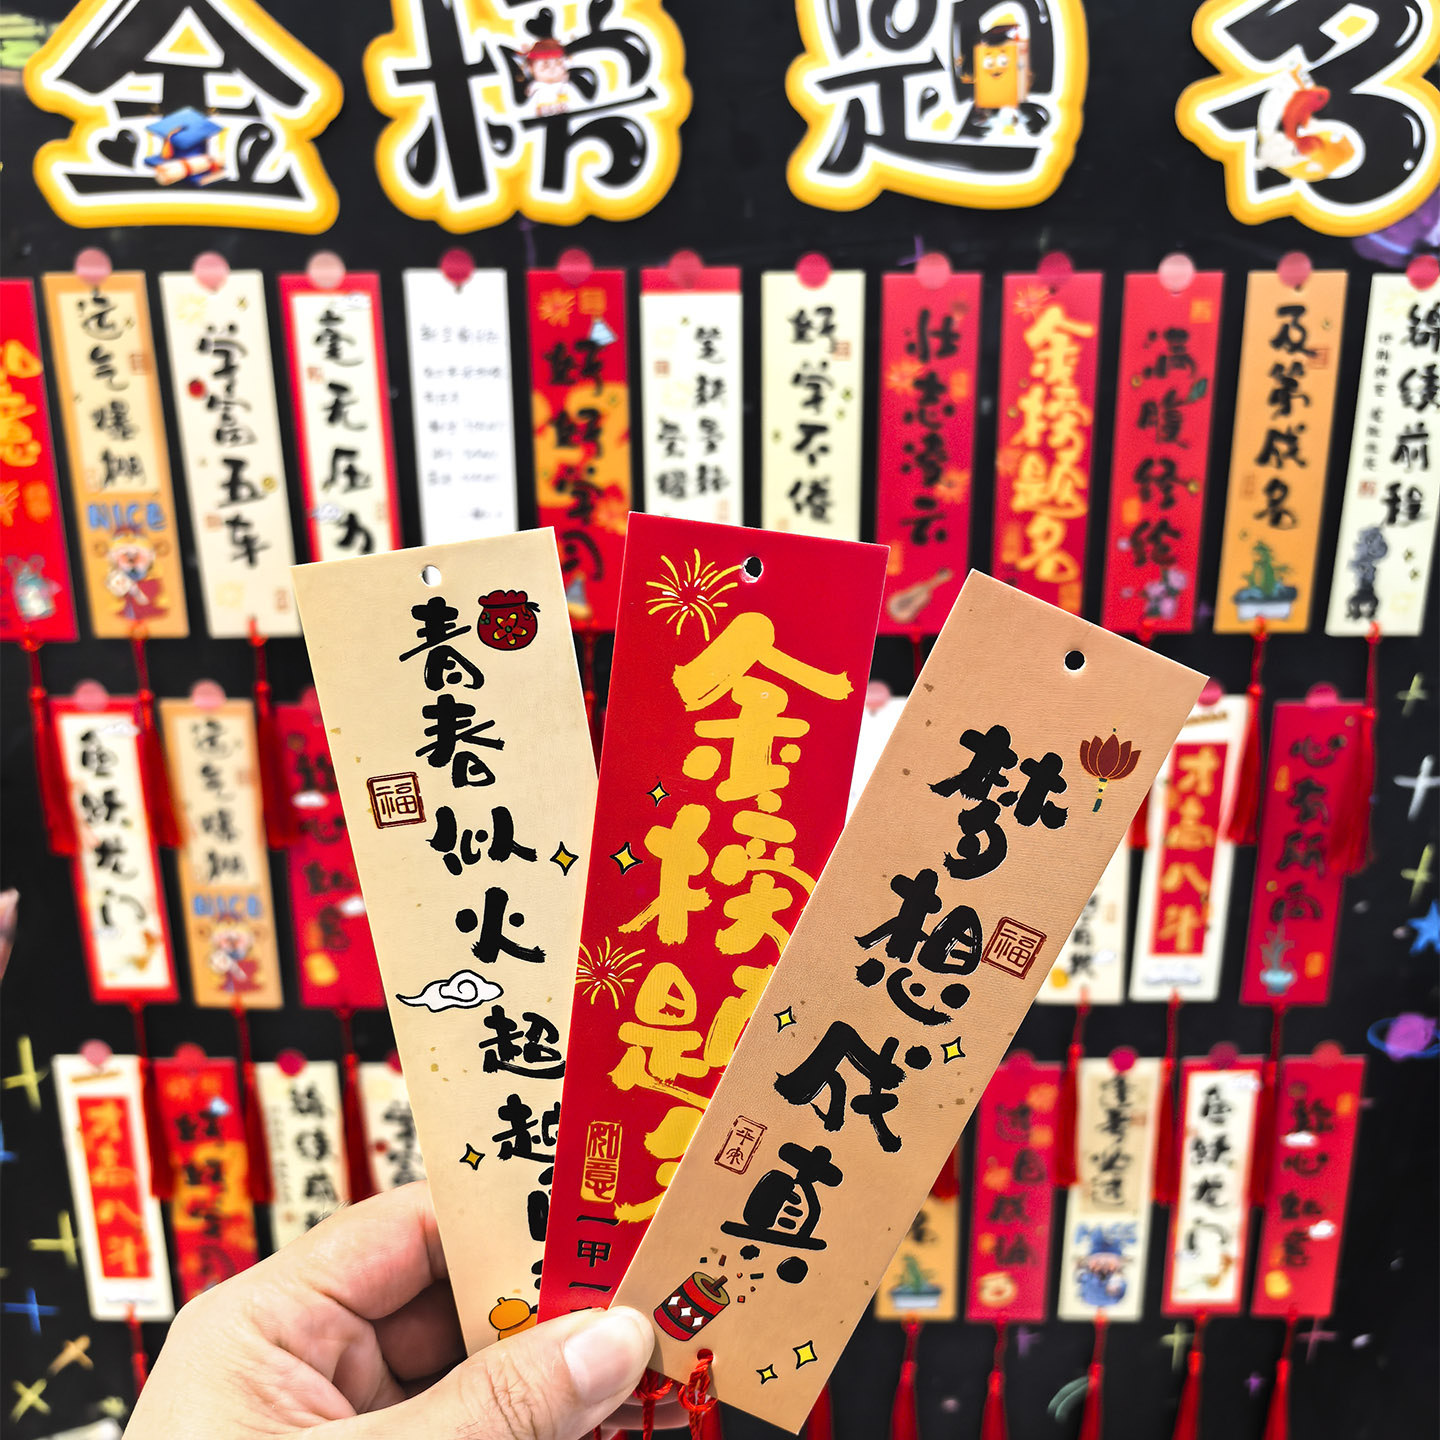 金榜题名
运气爆棚
NICE
学富五车
毫无压力
好好学习
好学不倦
壮志凌云
金榜题名
满腹经纶
及第成名
锦绣前程
青春似火超越
福
金榜题
如意
一甲一
梦想成真
福
平安
鱼跃龙门
运气爆棚
NICE
称心如意
才高八斗
心有所向
才高八斗
好好学习
锦绣前
逢考必过
鱼跃龙门
称心如意